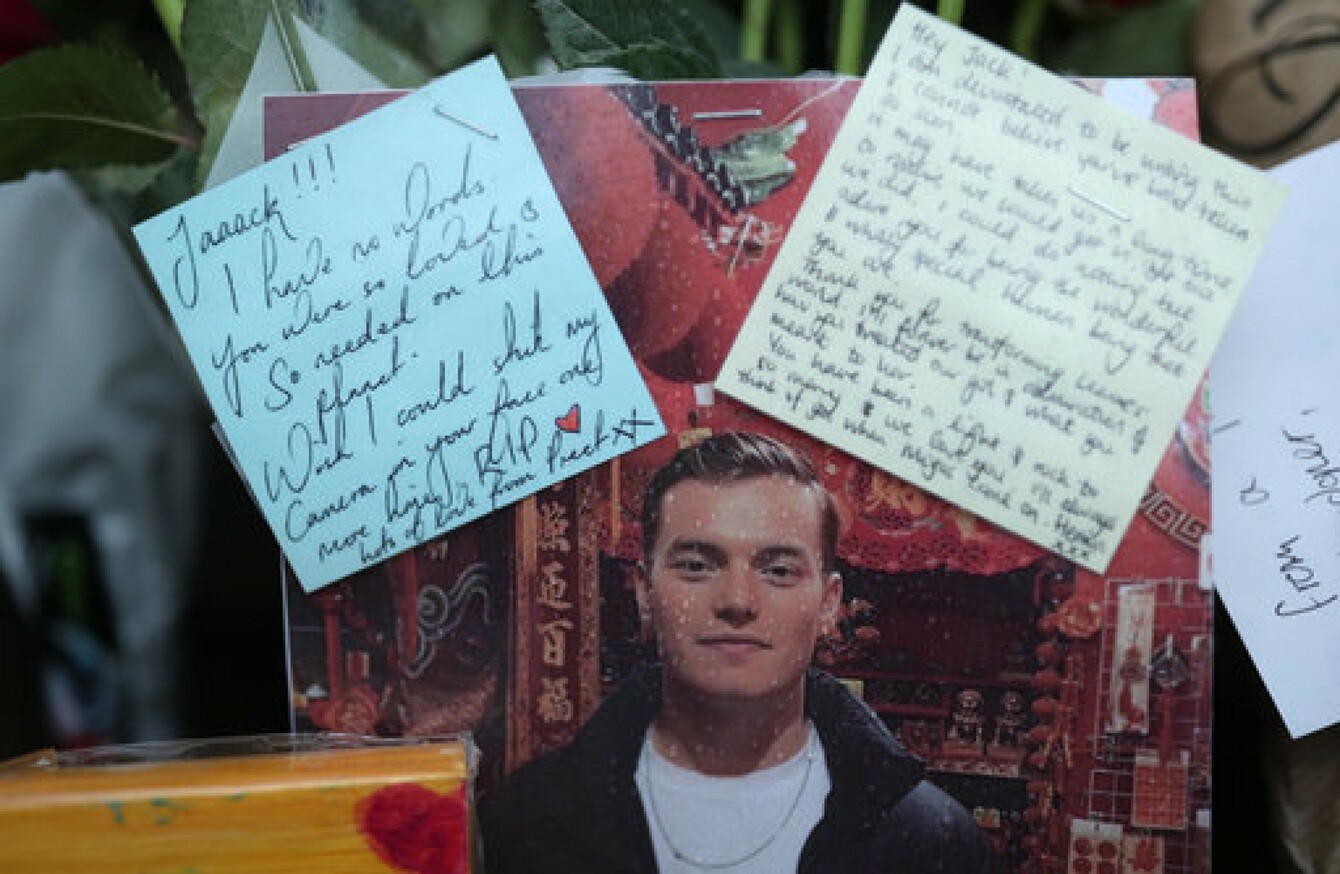 Jaaack!!!
I have no words.
You were so loved &
So needed on this
planet.
Wish I could shit my
Camera on your face one
more time. RIP
Lots of love from Preet xx
Hey Jack!
I am devastated to be writing this
I cannot believe you've been taken
so soon.
It may have taken us a long time
to realise we would get on, but once
we did, I could do nothing but
adore you for being the wonderful
& wholly special human being that
you are.
Thank you for
world, I'll forever be in
how you treated our girl & what you
meant to her.
You have been a light & rich to
so many & we love you. I'll always
think of you when Magic Time on.
xxx
from a
照
迎
百
福